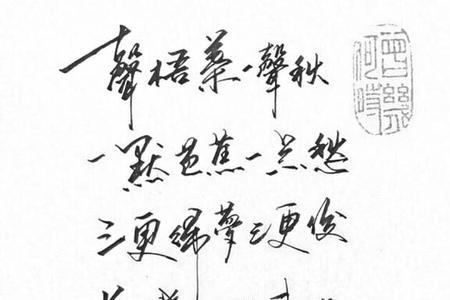 一聲梧葉一聲秋
一點芭蕉一点愁
三更歸夢三更後